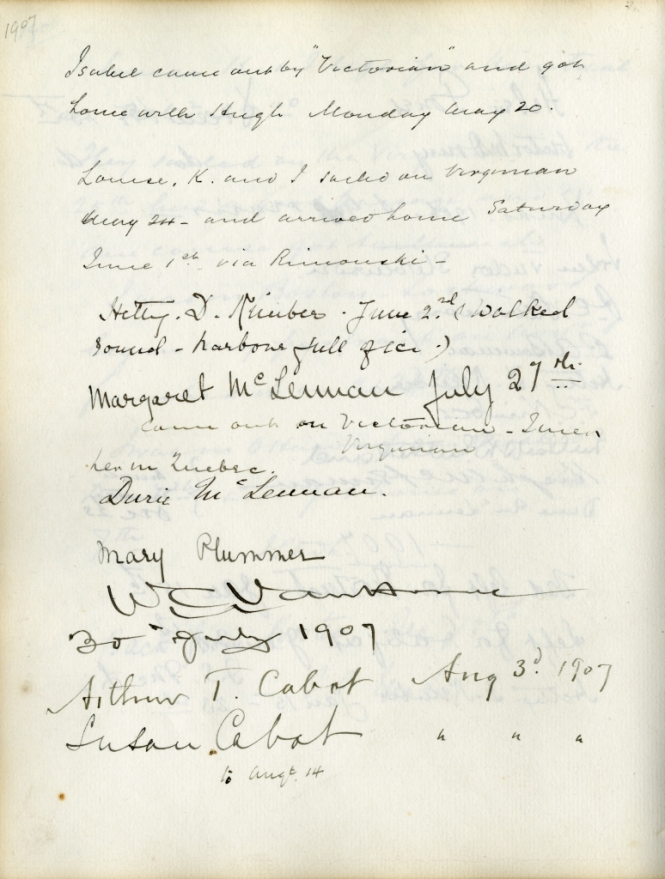 1907
2
Isabel came out by "Victorian" and got
home with Hugh Monday May 20.
Louise, K. and I sailed on Virginian
May 24 - and arrived home Saturday
June 1st via Rimouski -
Hetty. D. Kimber. June 2nd (Walked
round - harbour full of ice.)
Margaret McLennan July 27th
Came out on Victorian -
Virginian
her in Quebec.
Durie McLennan.
Mary Plummer
W C Van Horne
30 July 1907
Arthur T. Cabot Aug 3d. 1907
Susan Cabot " " "
to Augt. 14